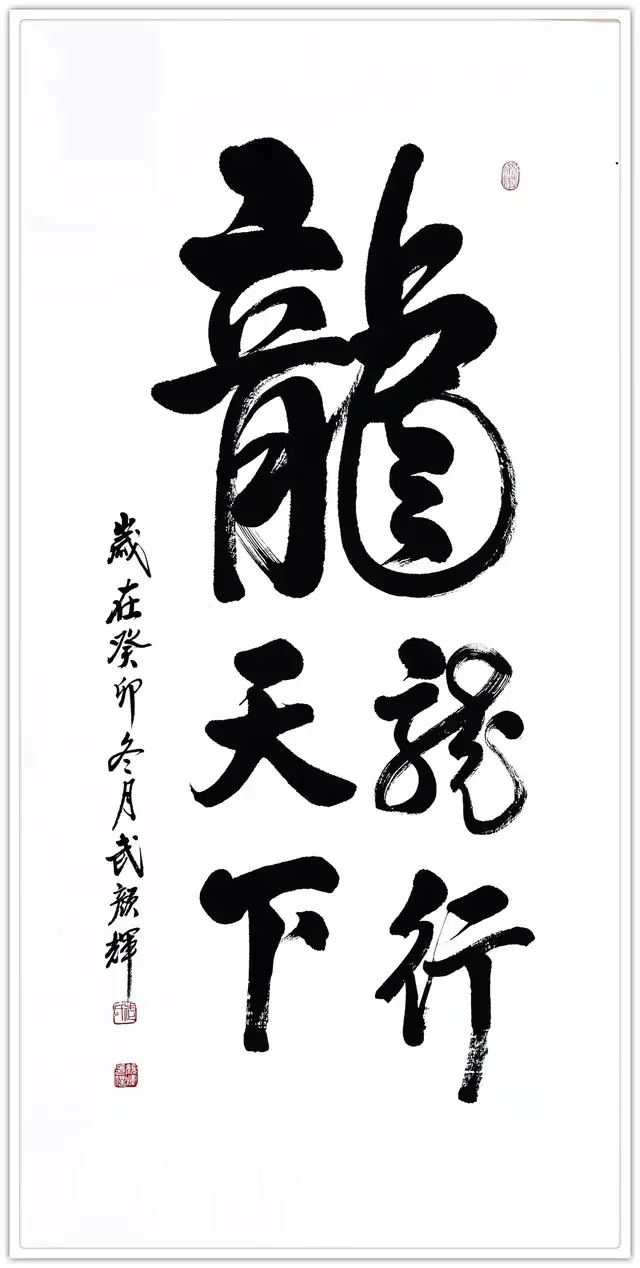 龍
龍行
天下
歲在癸卯冬月武顏輝